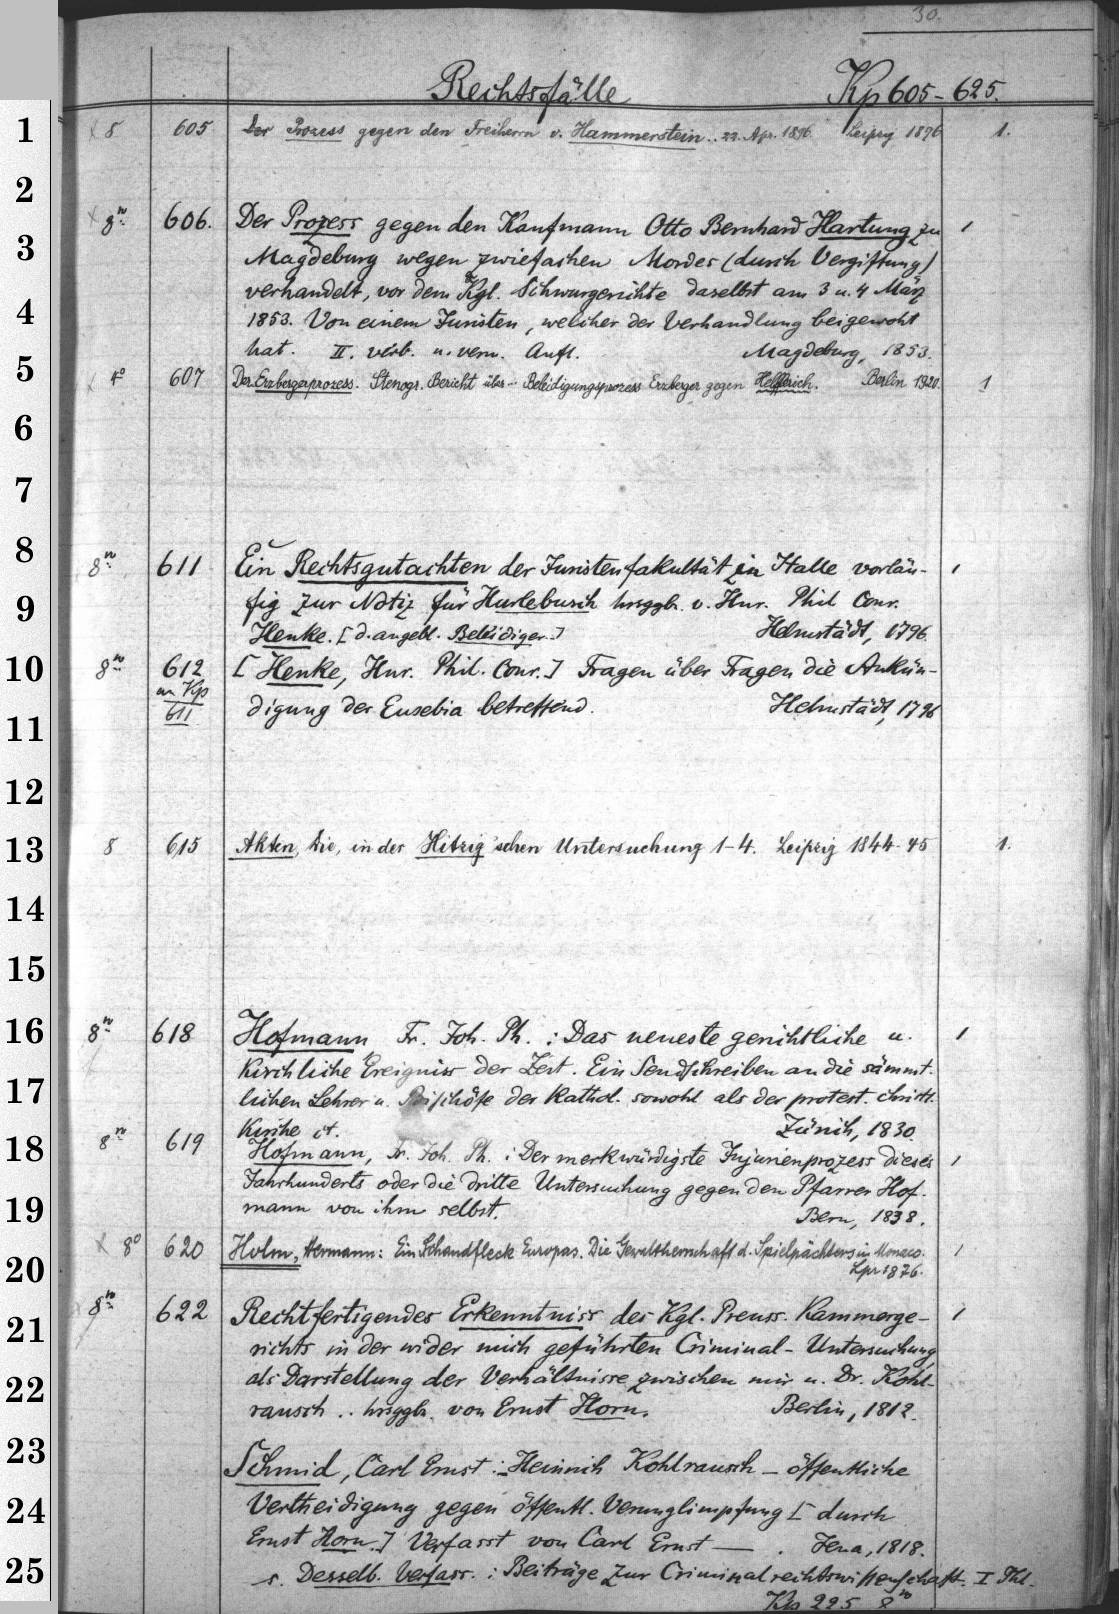 30.
Rechtsfälle Kp 605-625.
1
× 8 605 Der Prozess gegen den Freiherrn v. Hammerstein.. 22. Apr. 1896 Leipzig 1896 1.
2
× 8n 606. Der Prozess gegen den Kaufmann Otto Bernhard Hartung zu 1
3
Magdeburg wegen zwiefachen Mordes (durch Vergiftung)
verhandelt, vor dem Kgl. Schwurgerichte daselbst am 3 u. 4 März
4
1853. Von einem Juristen, welcher der Verhandlung beigewoht
hat. II. verb. u. verm. Aufl. Magdeburg, 1853.
5
× 4° 607 Der Erzbergerprozess. Stenogr. Bericht über Beleidigungsprozess Erzberger gegen Helfferich. Berlin 1920. 1
6
7
8
8n 611 Ein Rechtsgutachten der Juristenfakultät in Halle vorläu- 1
9
fig zur Notiz für Hurlebusch hrsggb. v. Hnr. Phil Conr.
Henke. [d. angebl. Beleidiger.] Helmstädt, 1796
10
8n 612 [Henke, Hnr. Phil. Conr.] Fragen über Fragen die Ankün-
an Kp
611 digung der Eusebia betreffend. Helmstädt, 1796
11
12
13
8 615 Akten, Die, in der Hitzig'schen Untersuchung 1-4. Leipzig 1844-45 1.
14
15
16
8n 618 Hofmann Fr. Joh. Ph. : Das neueste gerichtliche u. 1
kirchliche Ereigniss der Zeit. Ein Sendschreiben an die sämmt-
17
lichen Lehrer u. Bischöfe der kathol. sowohl als der protest. christl.
Kirche et. Zürich, 1830.
18
8n 619 Hofmann, Fr. Joh. Ph. : Der merkwürdigste Injurienprozess dieses 1
Jahrhunderts oder die dritte Untersuchung gegen den Pfarrer Hof-
19
mann von ihm selbst. Bern, 1838.
× 8° 620 Holm, Hermann: Ein Schandfleck Europas. Die Gewaltherrschaft d. Spielpächters in Monaco. 1
20
Lpz 1876.
8n 622 Rechtfertigendes Erkenntniss des Kgl. Preuss. Kammerge- 1
21
richts in der wider mich geführten Criminal- Untersuchung
22
als Darstellung der Verhältnisse zwischen mir u. Dr. Kohl-
rausch .. hrsggb. von Ernst Horn. Berlin, 1812.
23
Schmid, Carl Ernst : Heinrich Kohlrausch – öffentliche
24
Vertheidigung gegen öffentl. Verunglimpfung [durch
Ernst Horn.] Verfasst von Carl Ernst — . Jena, 1818.
25
s. Desselb. Verfass. : Beiträge zur Criminalrechtswissenschaft. I Thl.
Kp 225 8no